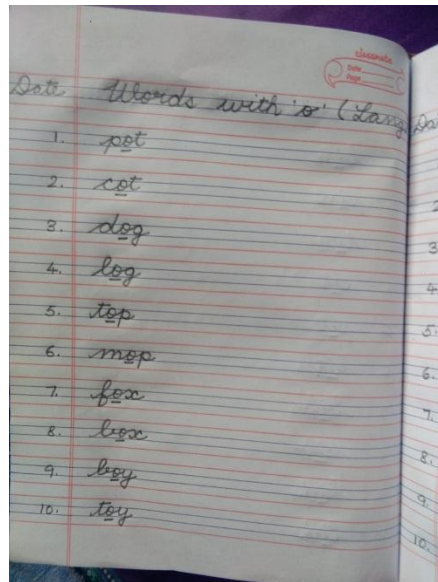 classmate
Date
Page
Date Words with 'o' (Lang
1. pot
2. cot
3. dog
4. log
5. top
6. mop
7. fox
8. box
9. boy
10. toy
3
4
5.
6.
7.
8.
9.
10.